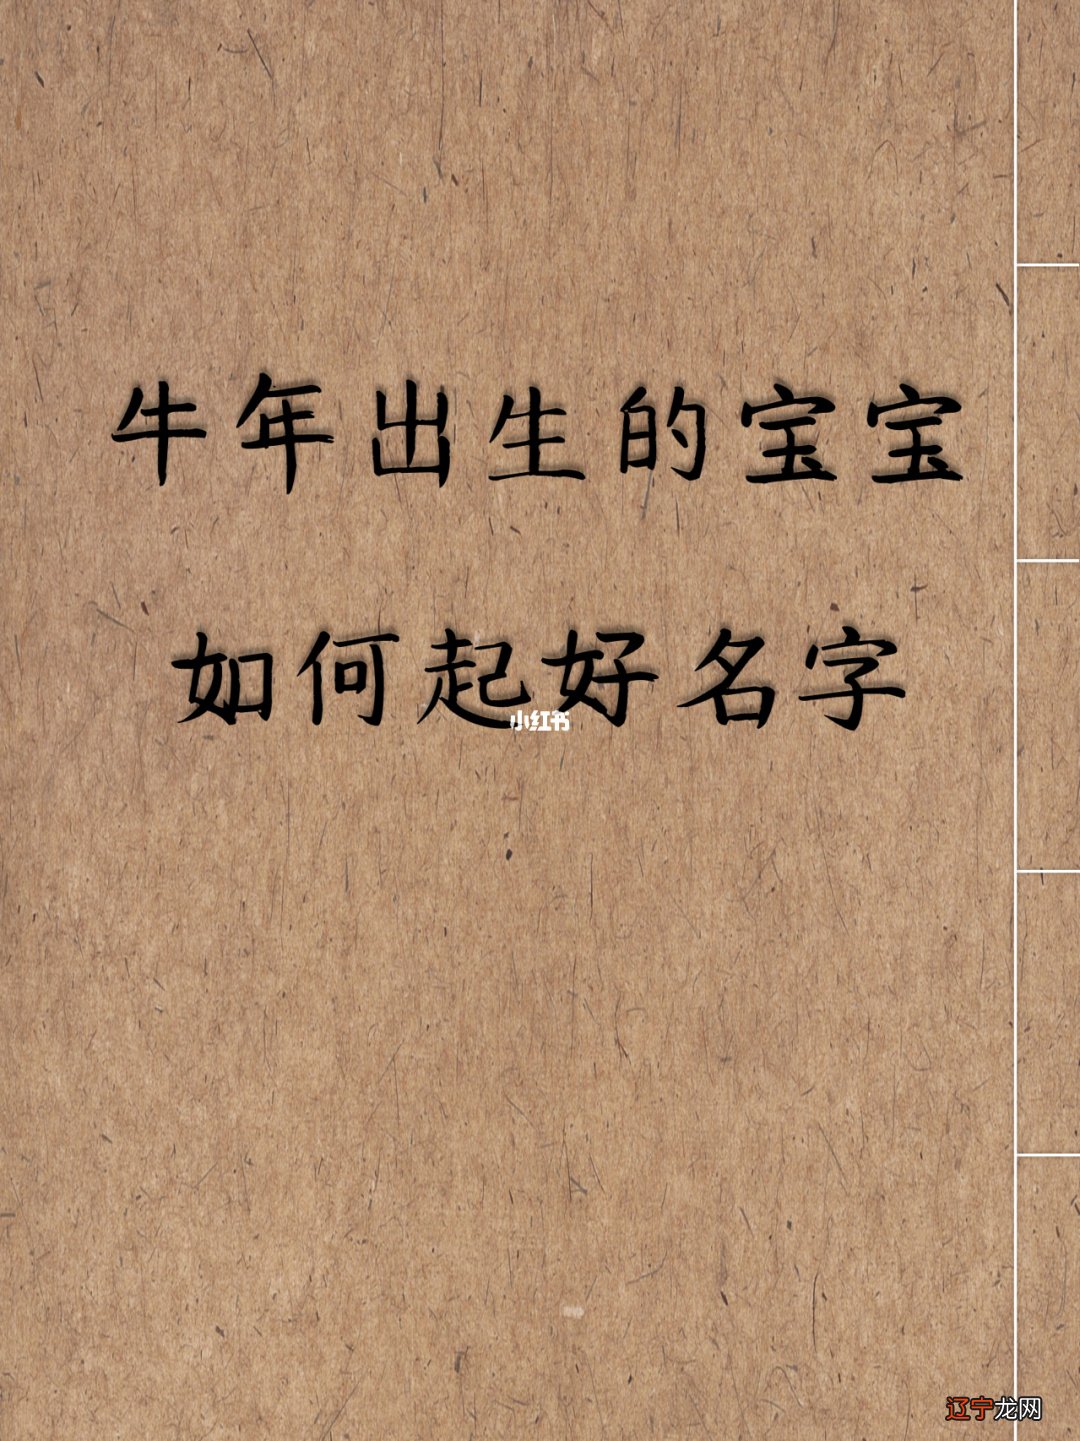 牛年出生的宝宝
如何起好名字
小红书
辽宁龙网